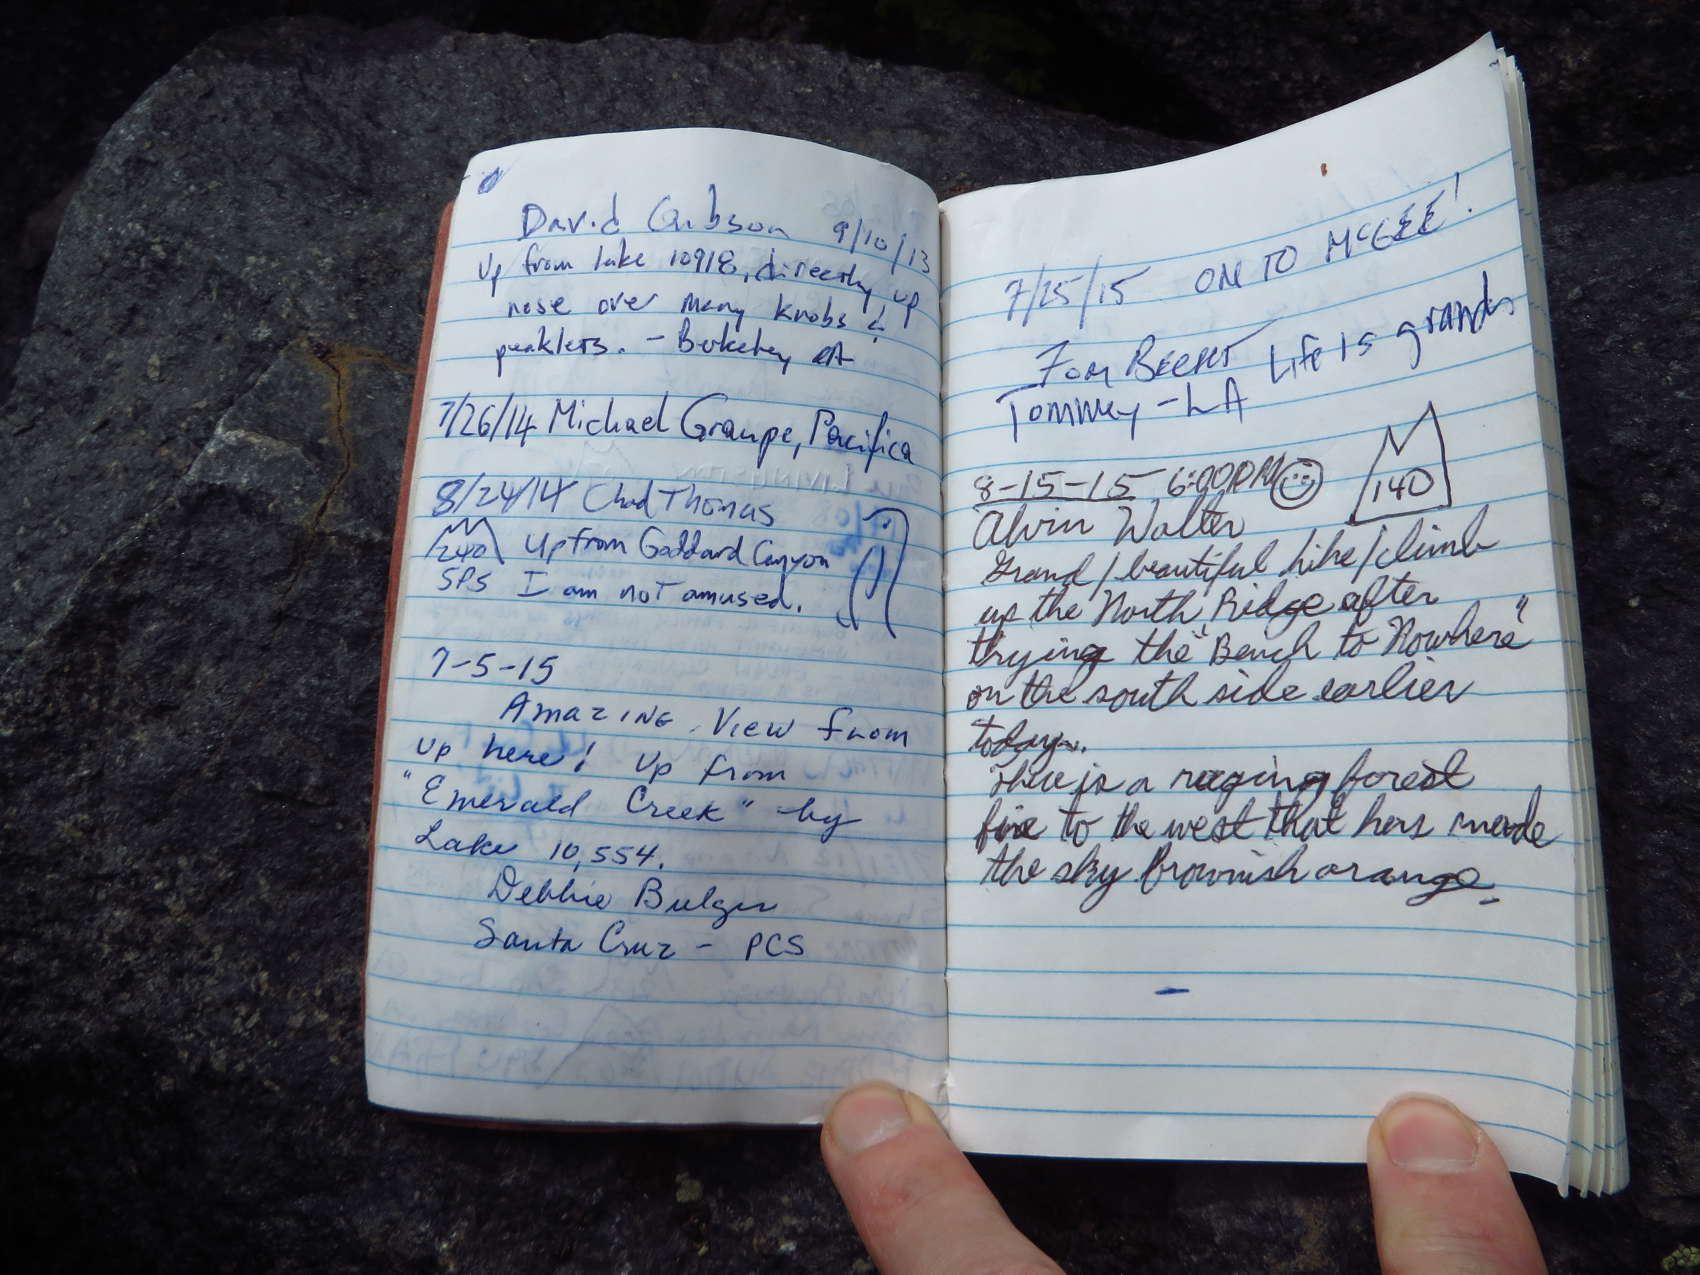 David Gibson 9/10/13
Up from lake 10918, directly up
nose over many knobs &
peaklets. - Berkeley CA
7/26/14 Michael Graupe, Pacifica
8/24/14 Chad Thomas
240 Up from Goddard Canyon
SPS I am not amused.
7-5-15
Amazing View from
up here! Up from
"Emerald Creek" by
Lake 10,554.
Debbie Bulger
Santa Cruz - PCS
7/25/15 ON TO McGEE!
Tom Becht Life is grand
Tommey - LA
8-15-15 6:00PM
140
Alvin Walter
Grand/beautiful hike/climb
up the North Ridge after
trying the "Bench to Nowhere"
on the south side earlier
today.
There is a raging forest
fire to the west that has made
the sky brownish orange.